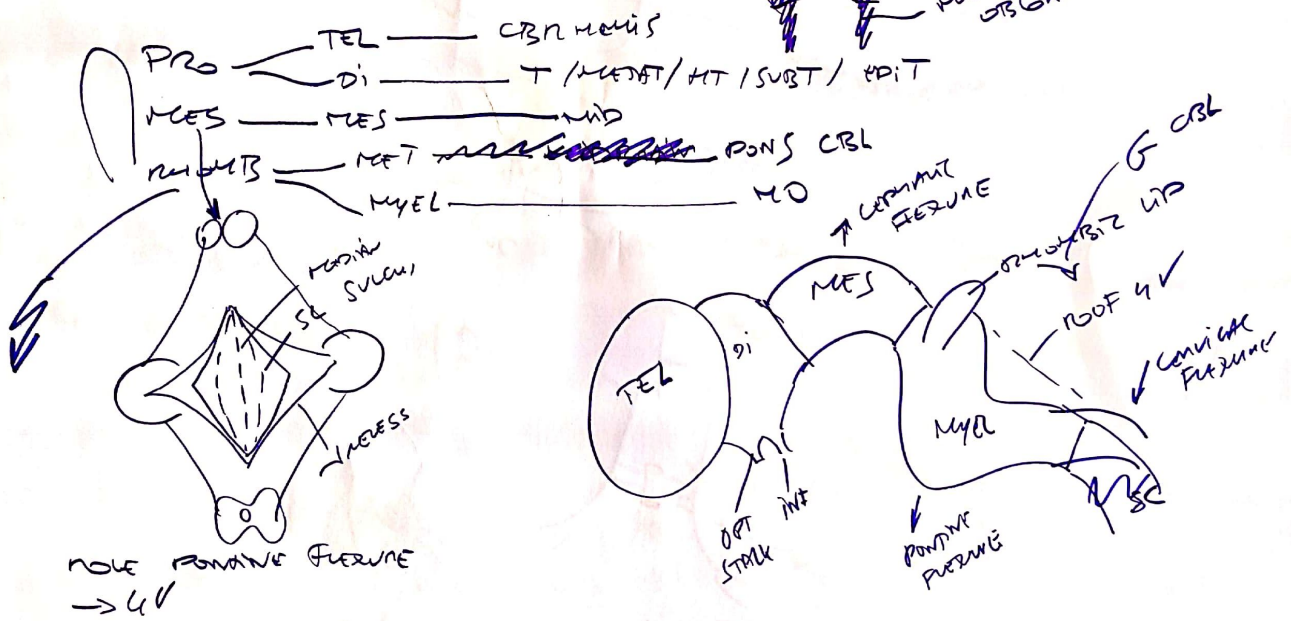 PRO TEL CBR HEMIS
Di T / METAT / HT / SUBT / EPiT
MES MES MiD
RHOMB MET PONS CBL
MYEL MO
MEDIAN
SULCUS
SL
RECESS
ROLE PONTINE FLEXURE
→ 4V
CEPHALIC
FLEXURE
CBL
RHOMBIC LIP
ROOF 4V
CERVICAL
FLEXURE
MES
Di
TEL
MYEL
SC
OPT
STALK
INF
PONTINE
FLEXURE